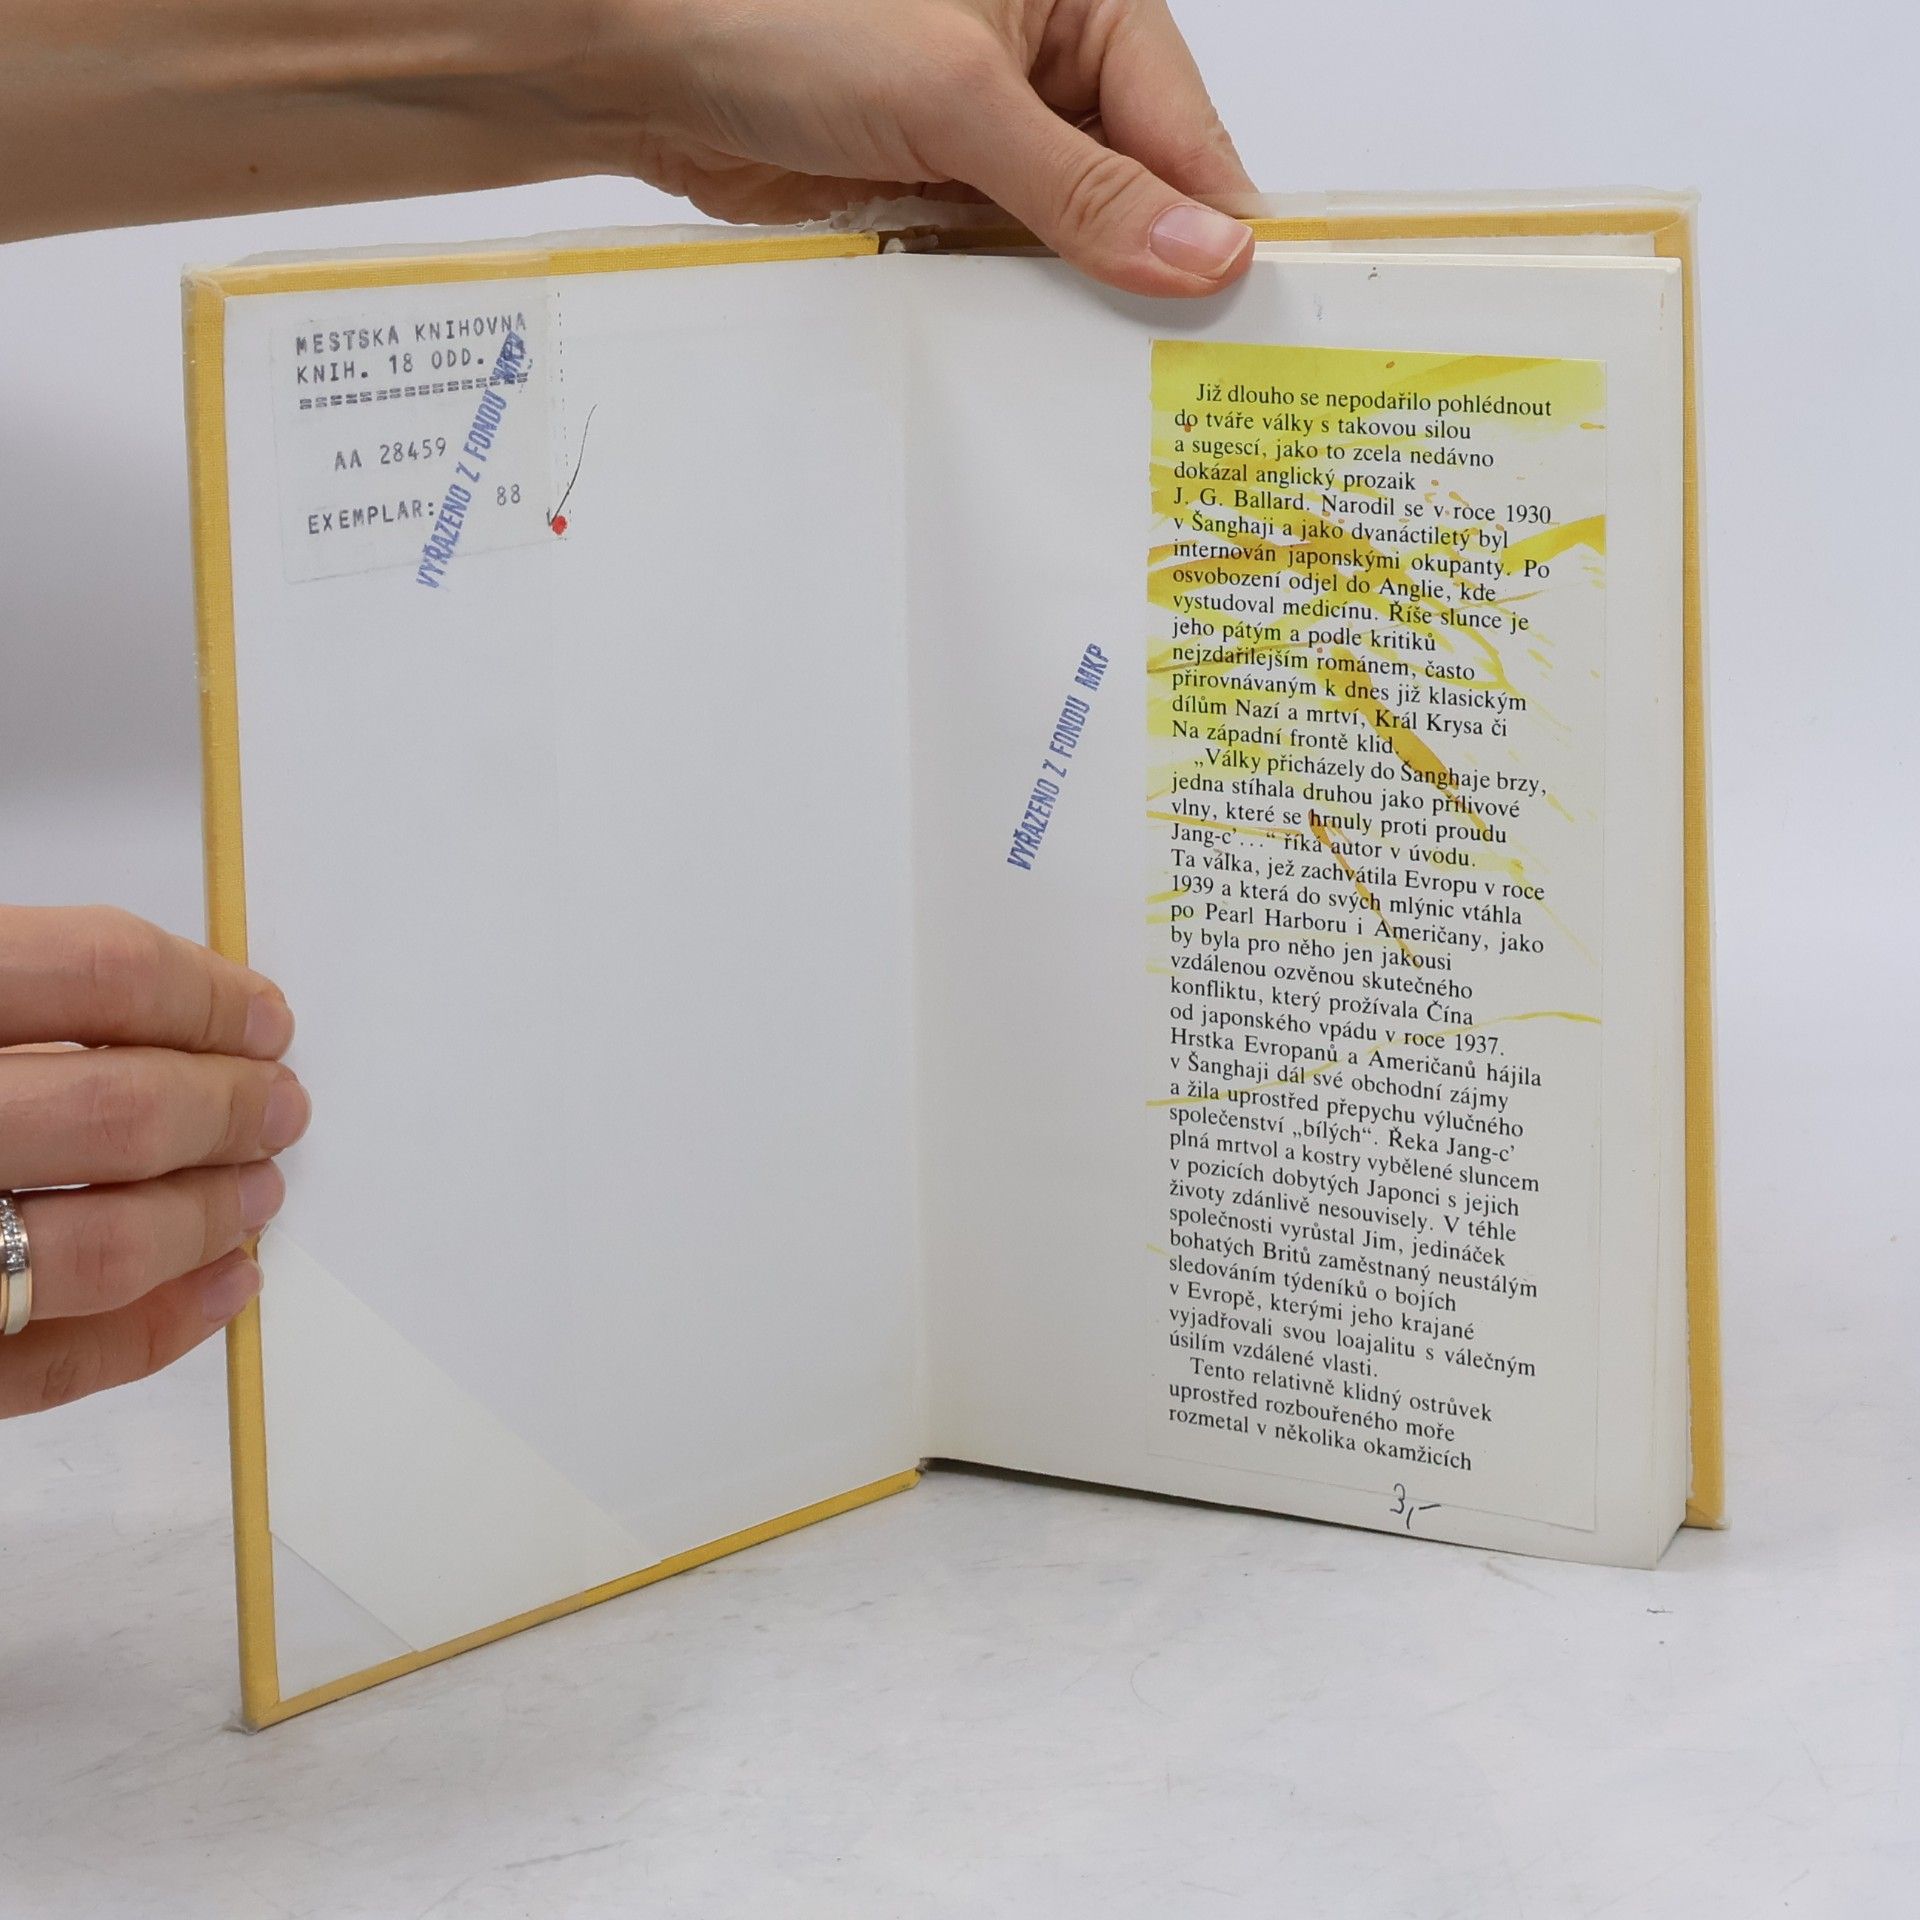 MESTSKA KNIHOVNA
KNIH. 18 ODD.
AA 28459
EXEMPLAR: 88
VYŘAZENO Z FONDU MKP
VYŘAZENO Z FONDU MKP
Již dlouho se nepodařilo pohlédnout
do tváře války s takovou silou
a sugescí, jako to zcela nedávno
dokázal anglický prozaik
J. G. Ballard. Narodil se v roce 1930
v Šanghaji a jako dvanáctiletý byl
internován japonskými okupanty. Po
osvobození odjel do Anglie, kde
vystudoval medicínu. Říše slunce je
jeho pátým a podle kritiků
nejzdařilejším románem, často
přirovnávaným k dnes již klasickým
dílům Nazí a mrtví, Král Krysa či
Na západní frontě klid.
„Války přicházely do Šanghaje brzy,
jedna stíhala druhou jako přílivové
vlny, které se hrnuly proti proudu
Jang-c’...“ říká autor v úvodu.
Ta válka, jež zachvátila Evropu v roce
1939 a která do svých mlýnic vtáhla
po Pearl Harboru i Američany, jako
by byla pro něho jen jakousi
vzdálenou ozvěnou skutečného
konfliktu, který prožívala Čína
od japonského vpádu v roce 1937.
Hrstka Evropanů a Američanů hájila
v Šanghaji dál své obchodní zájmy
a žila uprostřed přepychu výlučného
společenství „bílých“. Řeka Jang-c’
plná mrtvol a kostry vybělené sluncem
v pozicích dobytých Japonci s jejich
životy zdánlivě nesouvisely. V téhle
společnosti vyrůstal Jim, jedináček
bohatých Britů zaměstnaný neustálým
sledováním týdeníků o bojích
v Evropě, kterými jeho krajané
vyjadřovali svou loajalitu s válečným
úsilím vzdálené vlasti.
Tento relativně klidný ostrůvek
uprostřed rozbouřeného moře
rozmetal v několika okamžicích
3,-